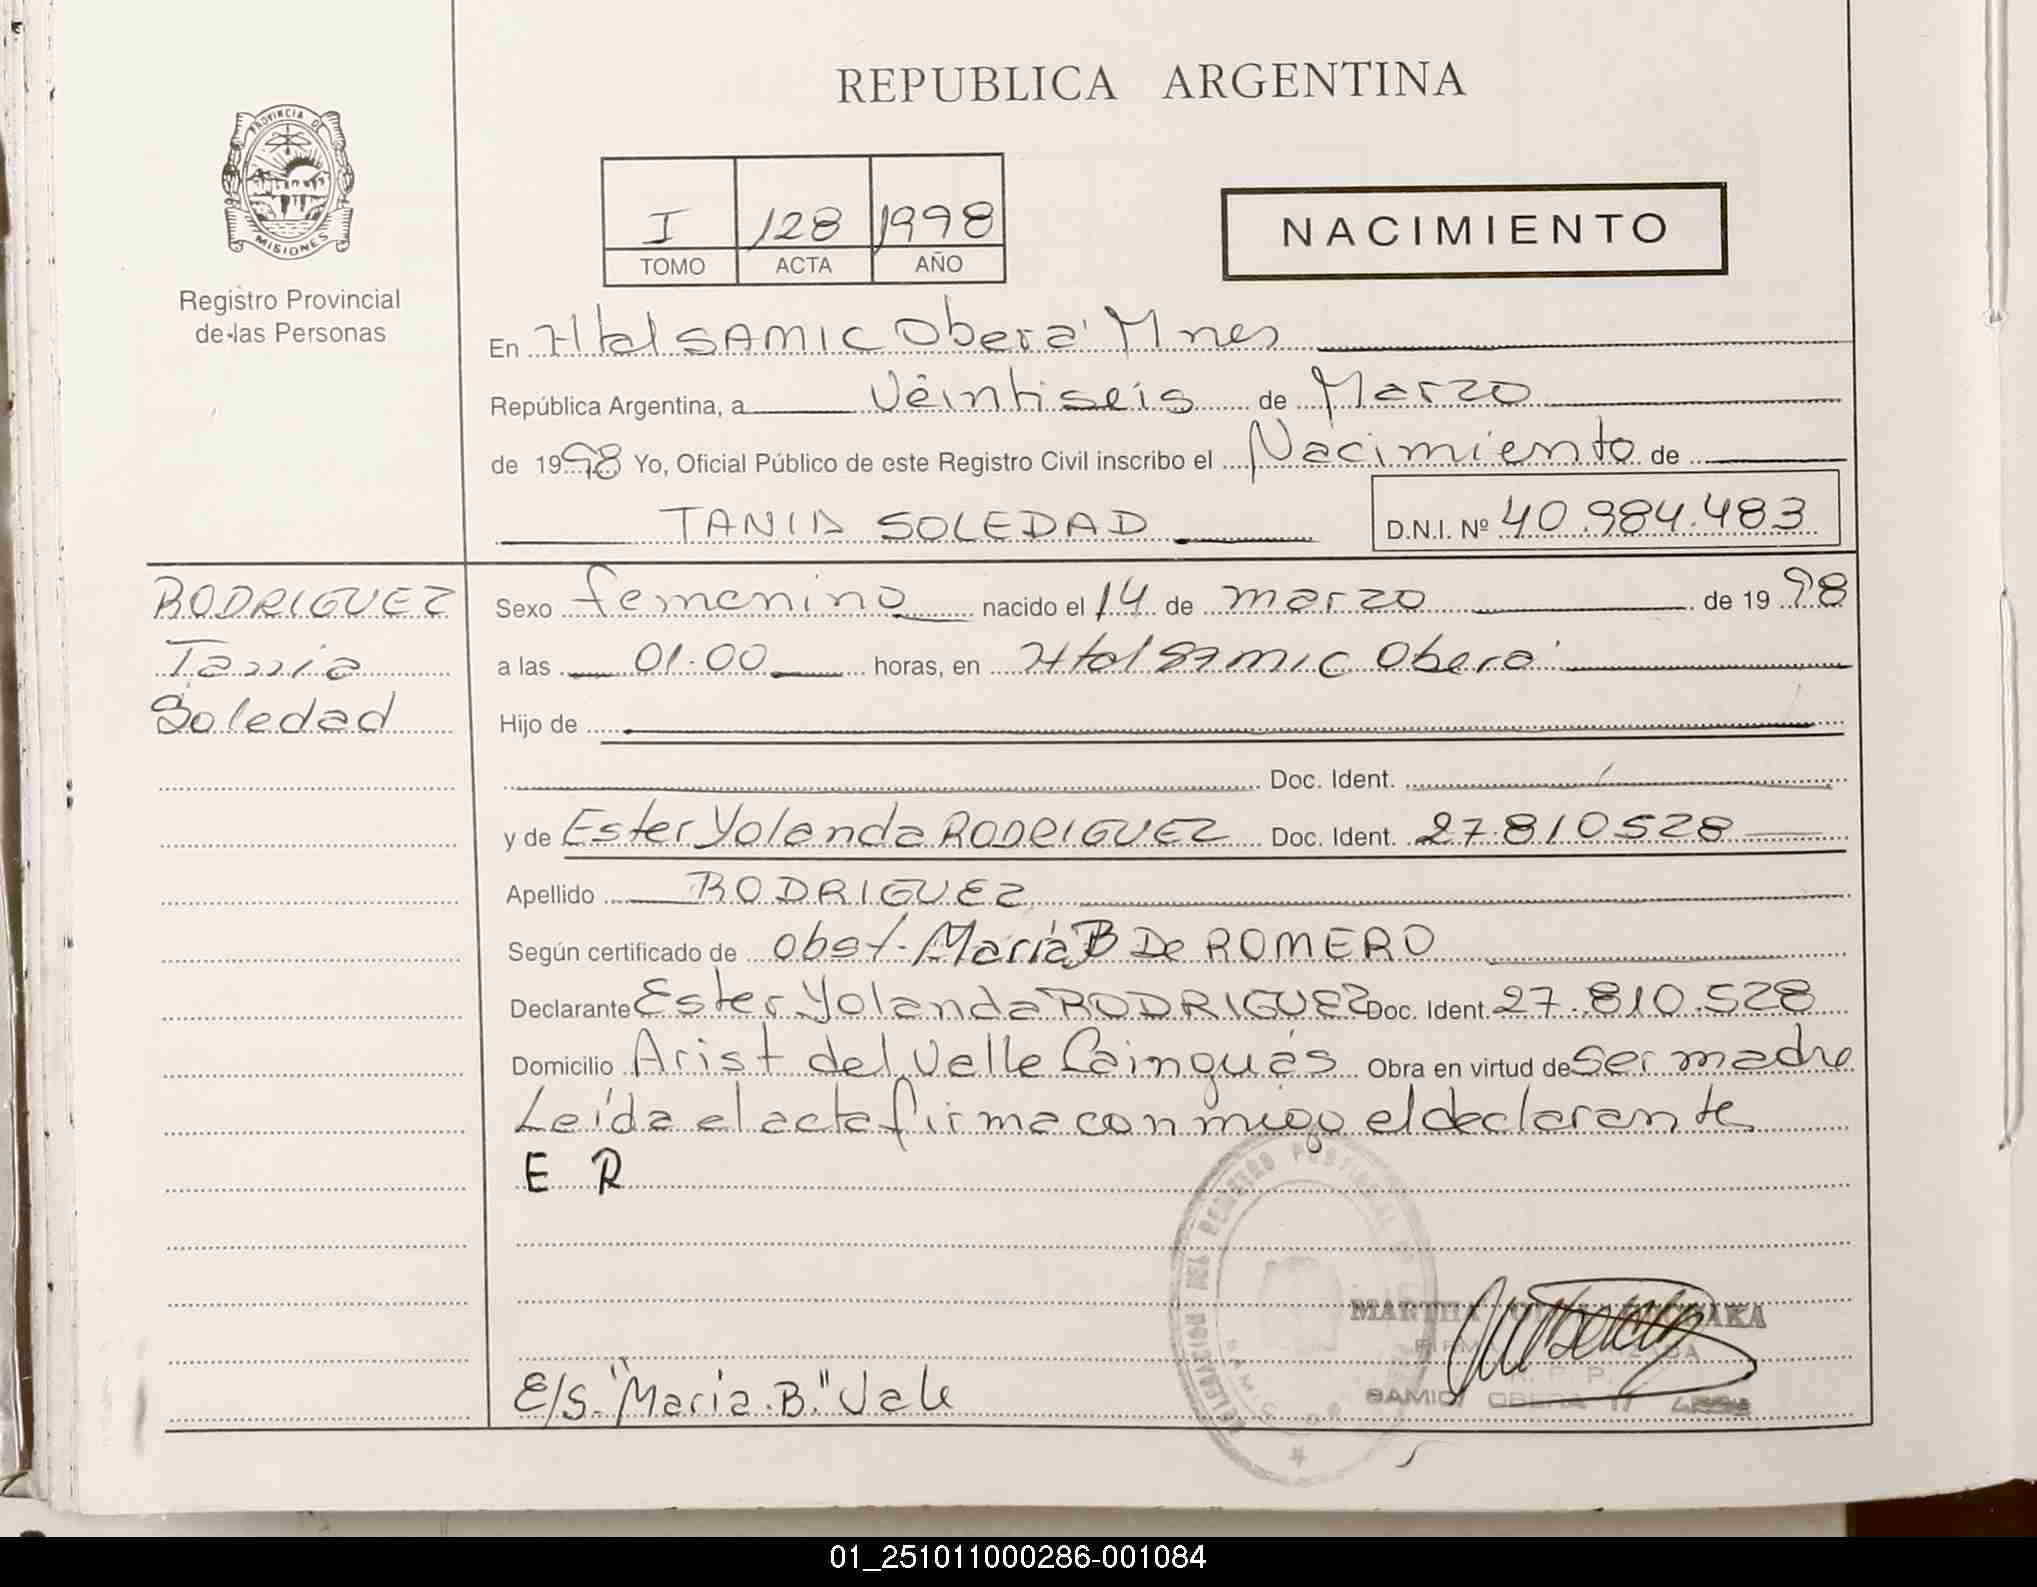 REPUBLICA ARGENTINA
PROVINCIA DE
MISIONES
Registro Provincial
de las Personas
I 128 1998
TOMO ACTA AÑO
NACIMIENTO
En Htal SAMIC Oberá Mnes
República Argentina, a Veintiseis de Marzo
de 1998 Yo, Oficial Público de este Registro Civil inscribo el Nacimiento de
TANIA SOLEDAD D.N.I. Nº 40.984.483
RODRIGUEZ
Tania
Soledad
Sexo femenino nacido el 14 de marzo de 1998
a las 01.00 horas, en Htal SAMIC Oberá
Hijo de
Doc. Ident.
y de Ester Yolanda RODRIGUEZ Doc. Ident. 27.810.528
Apellido RODRIGUEZ
Según certificado de obst. María B De ROMERO
Declarante Ester Yolanda RODRIGUEZ Doc. Ident. 27.810.528
Domicilio Arist del Valle Cainguás Obra en virtud de ser madre
Leída el acta firma conmigo el declarante
E R
DELEGACION DEL REGISTRO
MARTHA
SAMIC OBERA
E/S. "Maria.B." Vale
01_251011000286-001084